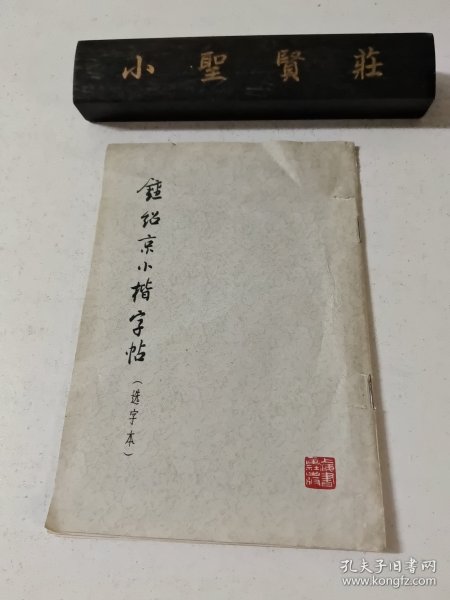 小聖賢莊
鍾紹京小楷字帖
（选字本）
孔夫子旧书网
www.kongfz.com